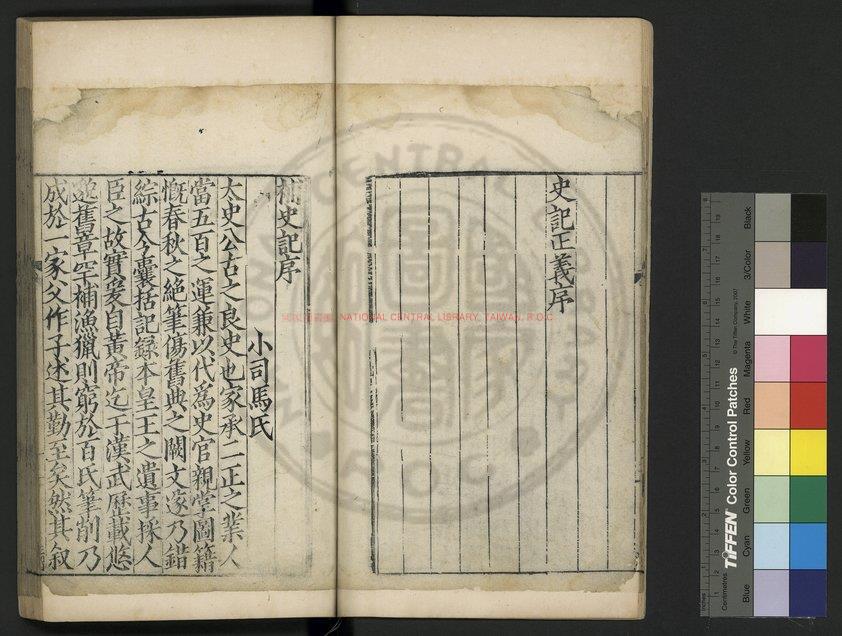 史記正義序
補史記序
小司馬氏
太史公古之良史也家承二正之業人
當五百之運兼以代爲史官親掌圖籍
慨春秋之絶筆傷舊典之闕文遂乃錯
綜古今囊括記録本皇王之遺事採人
臣之故實爰自黄帝迄于漢武歷載悠
邈舊章罕補漁獵則窮於百氏筆削乃
成於一家父作子述其勤至矣然其叙
NATIONAL CENTRAL LIBRARY, TAIWAN, R.O.C.
Inches
Centimetres
TIFFEN Color Control Patches
© The Tiffen Company, 2007
Blue
Cyan
Green
Yellow
Red
Magenta
White
3/Color
Black